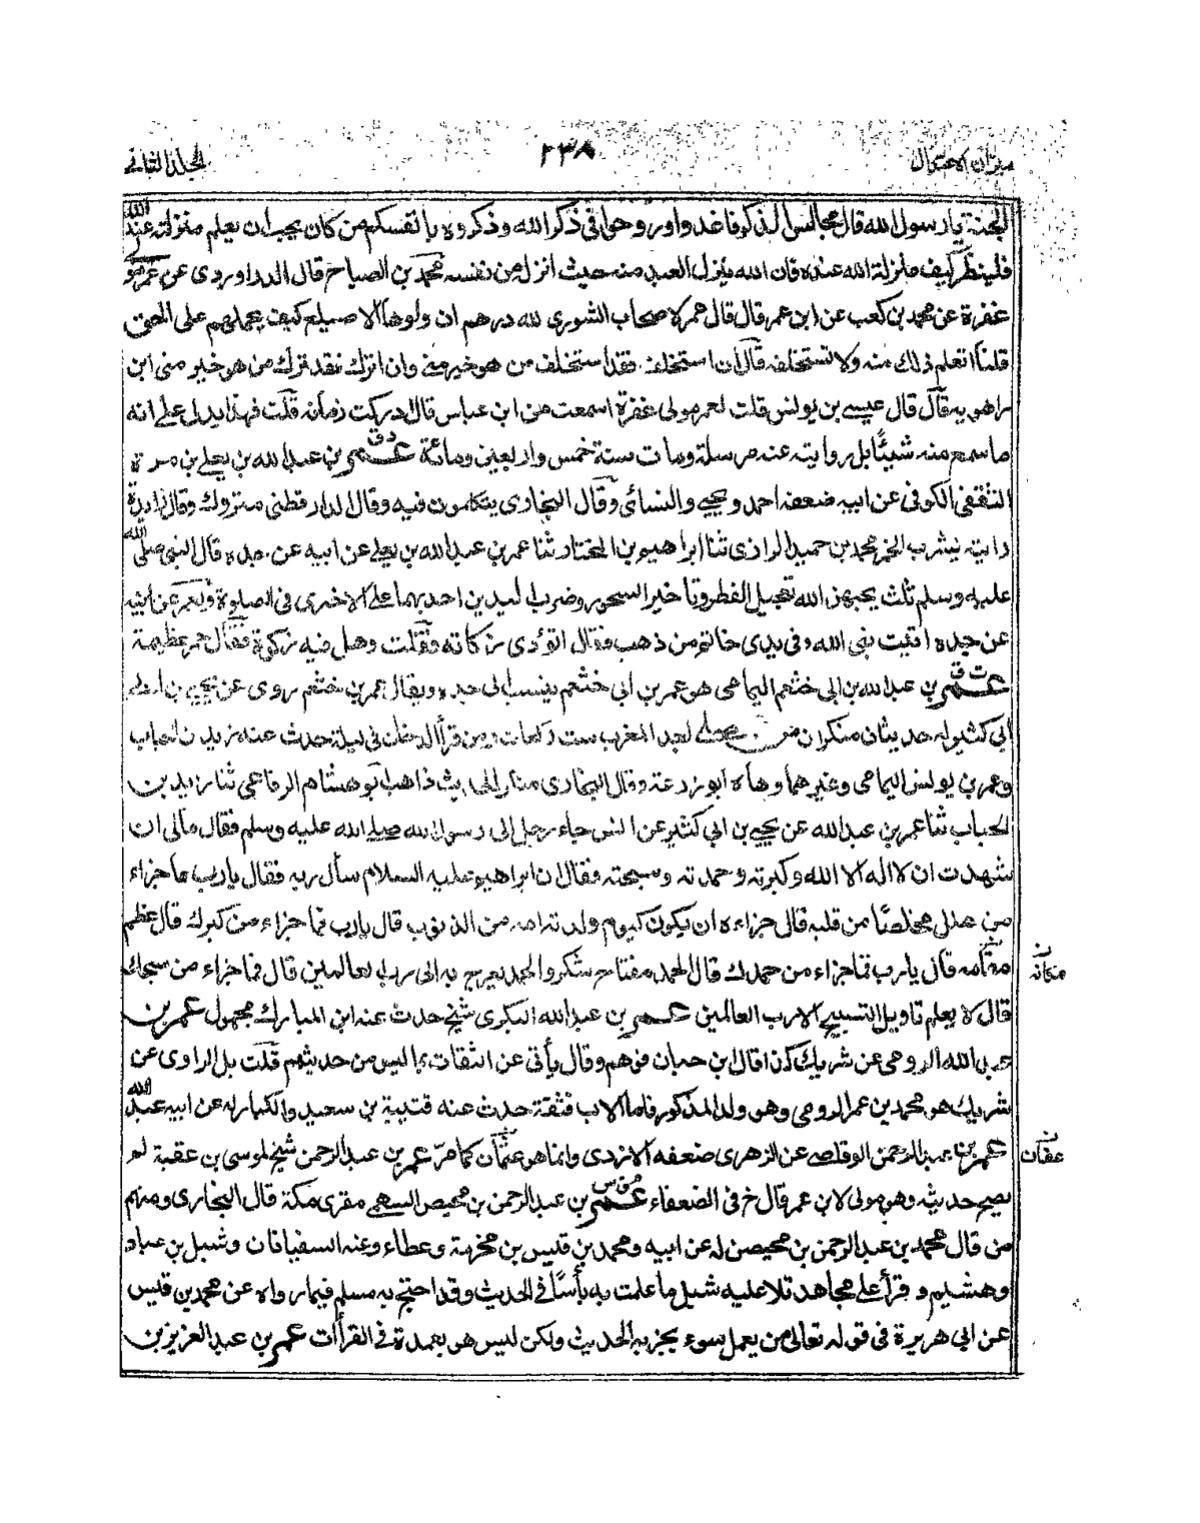 ميزان الاعتدال
٢٣٨
المجلد الثاني
الجنة يا رسول الله قال مجالس الذكر فاغدوا وروحوا في ذكر الله وذكروه بانفسكم من كان يحب ان يعلم منزلته عند الله
فلينظر كيف منزلة الله عنده فان الله ينزل العبد منه حيث انزله من نفسه محمد بن الصباح قال الدراوردي عن عمر مولى
غفرة عن محمد بن كعب عن ابن عمر قال قال عمر لاصحاب الشورى لله درهم ان ولوها الاصيلع كيف يحملهم على الحق
قلنا اتعلم ذلك منه ولا تستخلفه قال ان استخلف فقد استخلف من هو خير مني وان اترك فقد ترك من هو خير مني ابن
راهويه قال قال عيسى بن يونس قلت لعمر مولى غفرة اسمعت من ابن عباس قال ادركت زمانه قلت فهذا يدل على انه
ما سمع منه شيئا بل روايته عنه مرسلة ومات سنة خمس واربعين ومائة عمر دق بن عبد الله بن يعلى بن مرة
الثقفي الكوفي عن ابيه ضعفه احمد ويحيى والنسائي وقال البخاري يتكلمون فيه وقال الدارقطني متروك وقال زائدة
رايته يشرب الخمر محمد بن حميد الرازي ثنا ابراهيم بن المختار ثنا عمر بن عبد الله بن يعلى عن ابيه عن جده قال النبي صلى الله
عليه وسلم ثلث يحبهن الله تعجيل الفطر وتاخير السحور وضرب اليدين احدهما على الاخرى في الصلوة ولعمر عن ابيه
عن جده اتيت نبي الله وفي يدي خاتم من ذهب فقال اتؤدي زكاته فقلت وهل فيه زكوة فقال جمر عظيمة
عمر ت ق بن عبد الله بن ابي خثعم اليمامي هو عمر بن ابي خثعم ينسب الى جده ويقال عمر بن خثعم روى عن يحيى بن
ابي كثير له حديثان منكران من صلى بعد المغرب ست ركعات ومن قرأ الدخان في ليلة حدث عنه زيد بن الحباب
وعمر بن يونس اليمامي وغيرهما وهاه ابو زرعة وقال البخاري منكر الحديث ذاهب ابو هشام الرفاعي ثنا زيد بن
الحباب ثنا عمر بن عبد الله عن يحيى بن ابي كثير عن انس جاء رجل الى رسول الله صلى الله عليه وسلم فقال مالي ان
شهدت ان لا اله الا الله وكبرته وحمدته وسبحته فقال ان ابراهيم عليه السلام سأل ربه فقال يا رب ما جزاء
من هلل مخلصا من قلبه قال جزاءه ان يكون كيوم ولدته امه من الذنوب قال يا رب فما جزاء من كبرك قال عظم
مقامه قال يا رب فما جزاء من حمدك قال الحمد مفتاح شكر والحمد يعرج به الى رب العالمين قال فما جزاء من سبحك
مكانه
قال لا يعلم تاويل التسبيح الا رب العالمين عمر بن عبد الله البكري شيخ حدث عنه ابن المبارك مجهول عمر بن
عبد الله الرومي عن شريك كذا قال ابن حبان فوهم وقال يأتي عن الثقات بما ليس من حديثهم قلت بل الراوي عن
شريك هو محمد بن عمر الرومي وهو ولد المذكور فاما الاب فثقة حدث عنه قتيبة بن سعيد والكبار له عن ابيه عبد الله
عمر بن عبد الرحمن الوقاصي عن الزهري ضعفه الازدي وانما هو عثمان كما مر عمر بن عبد الرحمن شيخ لموسى بن عقبة لم
عفان
يصح حديثه وهو مولى لابن عمر قال خ في الضعفاء عمر م ت س بن عبد الرحمن بن محيصن السهمي مقرئ مكة قال البخاري ومنهم
من قال محمد بن عبد الرحمن بن محيصن له عن ابيه ومحمد بن قيس بن مخرمة وعطاء وعنه السفيانان وشبل بن عباد
وهشيم وقرأ على مجاهد تلا عليه شبل ما علمت به بأسا في الحديث وقد احتج به مسلم فيما رواه عن محمد بن قيس
عن ابي هريرة في قوله تعالى من يعمل سوء يجز به الحديث ولكن ليس هو بعمدة في القرأات عمر بن عبد العزيز بن